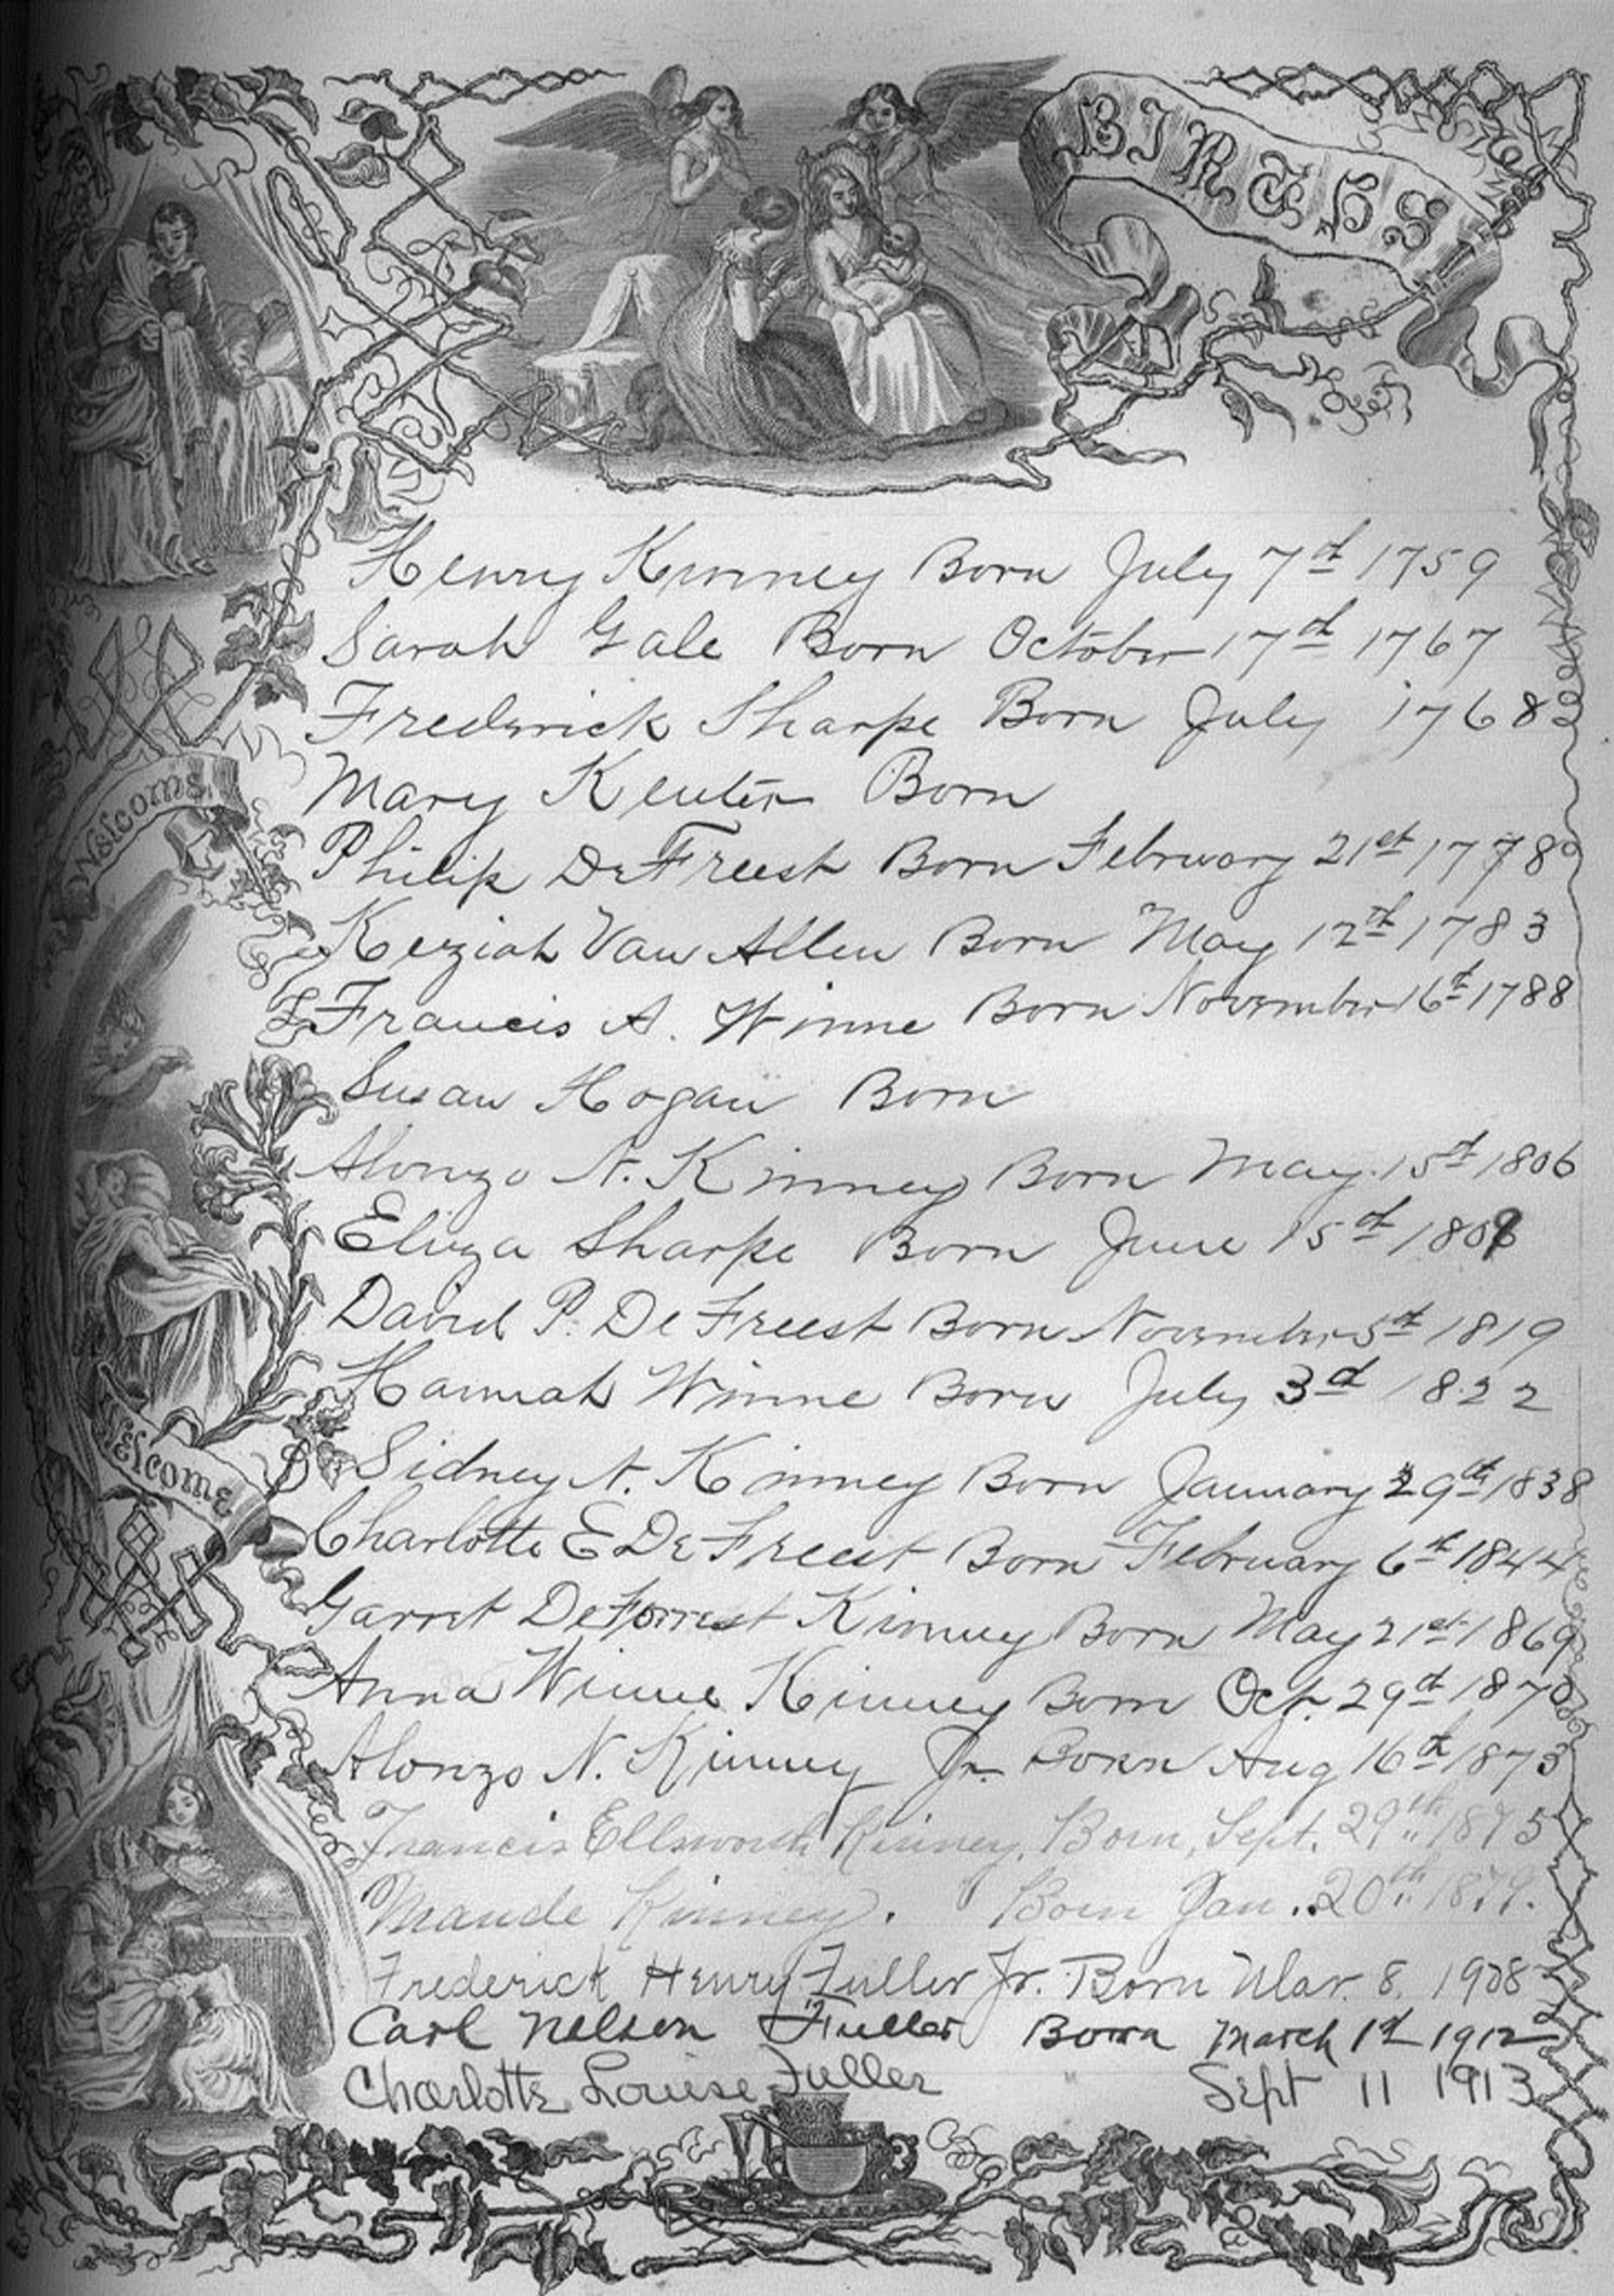 BIRTHS
Henry Kinney Born July 7th 1759
Sarah Gale Born October 17th 1767
Frederick Sharpe Born July 1768
Welcome
Mary Keuter Born
Philip DeFreest Born February 21st 1778
Keziah Van Allen Born May 12th 1783
Francis A. Winne Born November 16th 1788
Susan Hogan Born
Alonzo N. Kinney Born May 15th 1806
Eliza Sharpe Born June 15th
David P. DeFreest Born November 5th 1819
Hannah Winne Born July 3d 1822
Welcome
Sidney N. Kinney Born January 29th 1838
Charlotte E DeFreest Born February 6th 1844
Garret DeForrest Kinney Born May 21st 1869
Anna Winne Kinney Born Oct. 29th 1870
Alonzo N. Kinney Jr. Born Aug 16th 1873
Francis Ellsworth Kinney, Born, Sept. 29th 1875
Maude Kinney. Born Jan. 20th 1879.
Frederick Henry Fuller Jr. Born Mar. 8. 1908
Carl Nelson Fuller Born March 1st 1912
Charlotte Louise Fuller Sept 11 1913